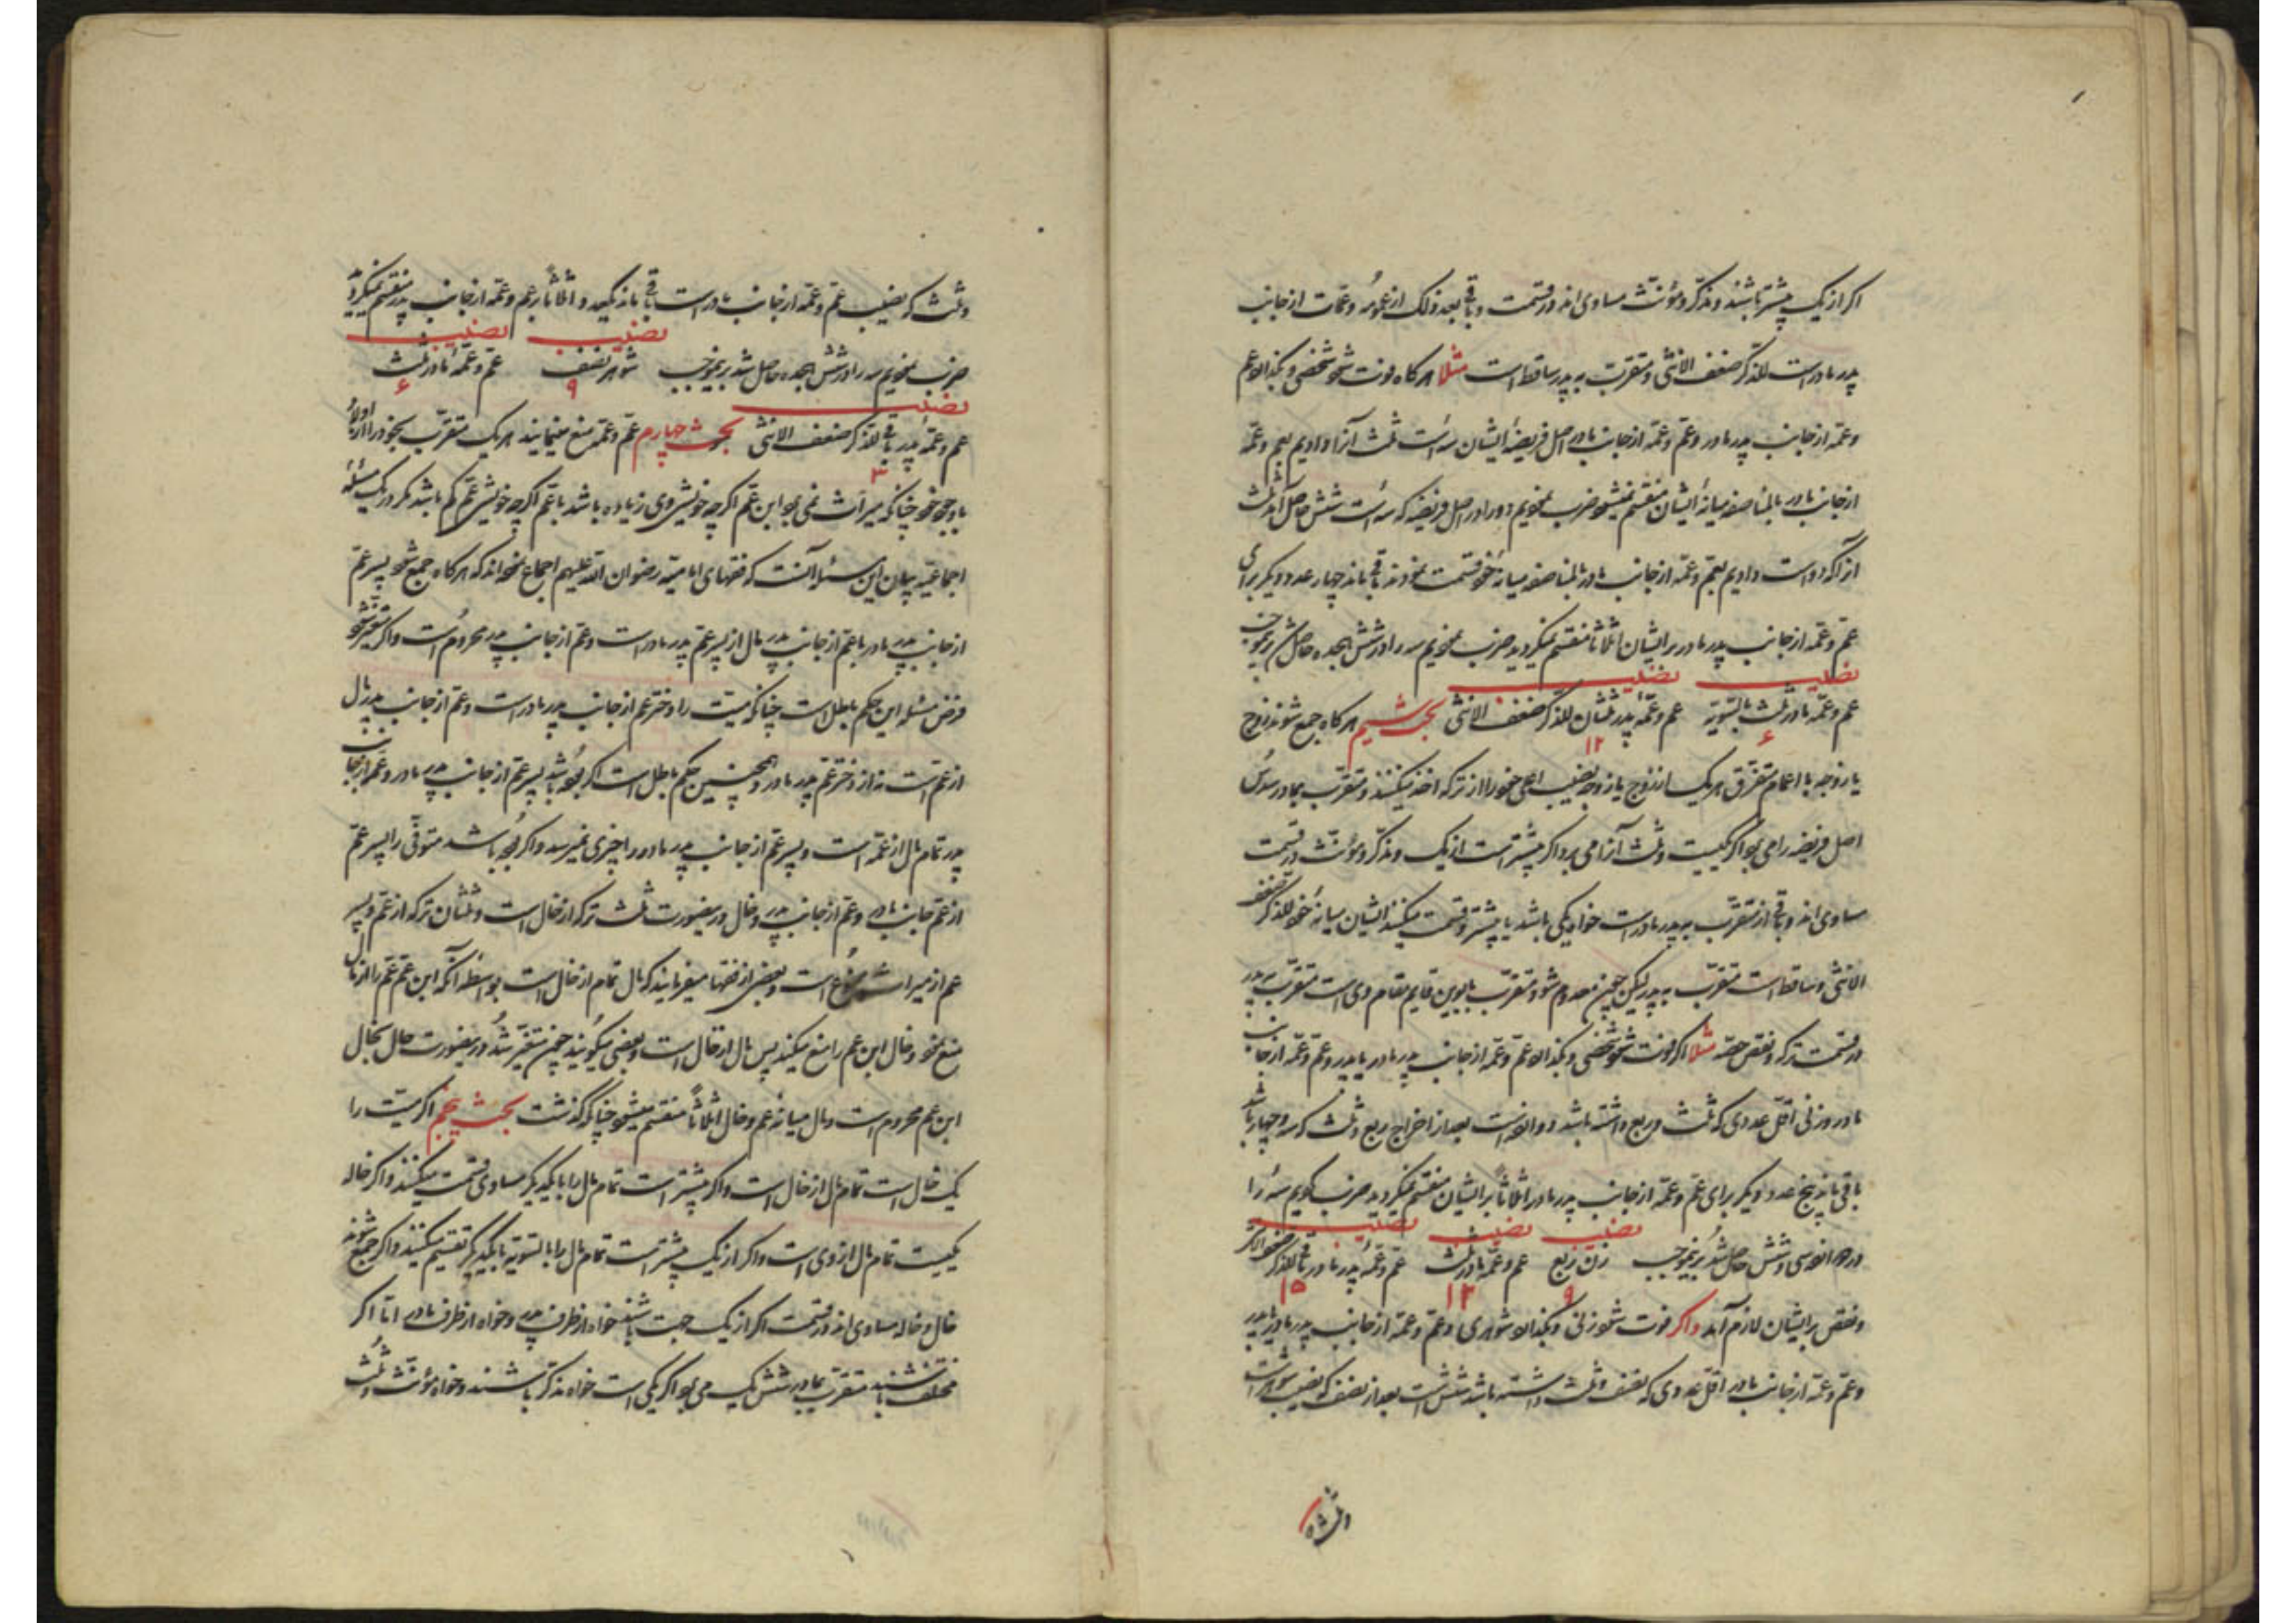 اکر از یک بیشتر باشند و مذکر و مؤنث مساوی اند در قسمت و باقی بعد ذلک از عمومه و عمات از جانب
پدر مادر است للذکر ضعف الانثی و متقرب به پدر ساقط است مثلا هر کاه فوت شود شخصی و بکذارد عم
و عمه از جانب پدر مادر و عم و عمه از جانب مادر اصل فریضه ایشان سه است ثلث آنرا دادیم بعم و عمه
از جانب مادر بالمناصفه میانه ایشان منقسم نمیشود ضرب نمودیم دو را در اصل فریضه که سه است شش حاصل آمد ثلث
از آنکه دو است دادیم بعم و عمه از جانب مادر بالمناصفه میانه خود قسمت نمودند باقی ماند چهار عدد دیکر برای
عم و عمه از جانب پدر مادر بر ایشان اثلاثا منقسم نمیکردید ضرب نمودیم سه را در شش هجده حاصل شد برینموجب
نصیب نصیب
عم و عمه مادر ثلث بالسویه عم و عمه پدر ثلثان للذکر ضعف الانثی بحث سیم هر کاه جمع شوند زوج
۶ ۱۲
یا زوجه با اعمام متفرق هر یک از زوج یا زوجه نصیب اعلی خود را از ترکه اخذ میکنند و متقرب بمادر سدس
اصل فریضه را می برد اکر یکیست و ثلث آنرا می برد اکر بیشتر است از یک و مذکر و مؤنث در قسمت
مساوی اند و باقی از متقرب به پدر مادر است خواه یکی باشد یا بیشتر و قسمت میکنند ایشان میانه خود للذکر ضعف
الانثی و ساقط است متقرب به پدر لیکن چون معدوم شود متقرب بابوین قایم مقام وی است متقرب به پدر
در قسمت ترکه و نقص حصه مثلا اکر فوت شود شخصی و بکذارد عم و عمه از جانب پدر مادر یا پدر و عم و عمه از جانب
مادر و زنی اقل عددی که ثلث و ربع داشته باشد دوازده است بعد از اخراج ربع و ثلث که سه و چهار باشد
باقی ماند پنج عدد دیکر برای عم و عمه از جانب پدر مادر اثلاثا بر ایشان منقسم نمیکردید ضرب کردیم سه را
نصیب نصیب نصیب
در دوازده سی و شش حاصل شد برینموجب زن ربع عم و عمه مادر ثلث عم و عمه پدر مادر باقی للذکر ضعف الانثی
۹ ۱۲ ۱۵
و نقص بر ایشان لازم آمد و اکر فوت شود زنی و بکذارد شوهری و عم و عمه از جانب پدر مادر یا پدر
و عم و عمه از جانب مادر اقل عددی که نصف و ثلث داشته باشد شش است بعد از نصف که نصیب شوهر است
و ثلث که نصیب عم و عمه از جانب مادر است باقی ماند یکعدد و اثلاثا بر عم و عمه از جانب پدر منقسم نمیکردید
نصیب نصیب
ضرب نمودیم سه را در شش هجده حاصل شد برینموجب شوهر نصف عم و عمه مادر ثلث
نصیب ۹ ۶
عم و عمه پدر باقی للذکر ضعف الانثی بحث چهارم عم و عمه منع مینمایند هر یک متقرب بخود را از اولاد
۳
با وجود خود چنانکه میراث نمی برد ابن عم اکر چه خویشی وی زیاده باشد با عم اکر چه خویشی عم کم باشد مکر در یک مسئله
اجماعیه بیان این مسئله آنست که فقهای امامیه رضوان الله علیهم اجماع نموده اند که هر کاه جمع شود پسر عم
از جانب پدر مادر با عم از جانب پدر مال از پسر عم پدر مادر است و عم از جانب پدر محروم است و اکر متغیر شود
فرض مسئله این حکم باطل است چنانکه میت را دختر عم از جانب پدر مادر است و عم از جانب پدر مال
از عم است نه از دختر عم پدر مادر و همچنین حکم باطل است اکر بوده باشد پسر عم از جانب پدر مادر و عمه از جانب
پدر تمام مال از عمه است و پسر عم از جانب پدر مادر را چیزی نمیرسد و اکر بوده باشد متوفی را پسر عم
از عم جانب مادر و عم از جانب پدر و خال درینصورت ثلث ترکه از خال است و ثلثان ترکه از عم و پسر
عم از میراث ممنوع است و بعضی از فقها میفرمایند که مال تمام از خال است بواسطه آنکه ابن عم عم را از مال
منع نمود و خال ابن عم را منع میکند پس مال از خال است و بعضی میکویند چون متغیر شد درینصورت حال بخال
ابن عم محروم است و مال میانه عم و خال اثلاثا منقسم میشود چنانکه کذشت بحث پنجم اکر میت را
یک خال است تمام مال از خال است و اکر بیشتر است تمام مال را با یکدیکر مساوی قسمت میکنند و اکر خاله
یکیست تمام مال از وی است و اکر از یک بیشتر است تمام مال را بالتسویه با یکدیکر تقسیم میکنند و اکر جمع شوند
خال و خاله مساوی اند در قسمت اکر از یک جهت باشند خواه از طرف پدر و خواه از طرف مادر اما اکر
مختلف باشند متقرب بمادر شش یک می برد اکر یکی است خواه مذکر باشند و خواه مؤنث و ثلث